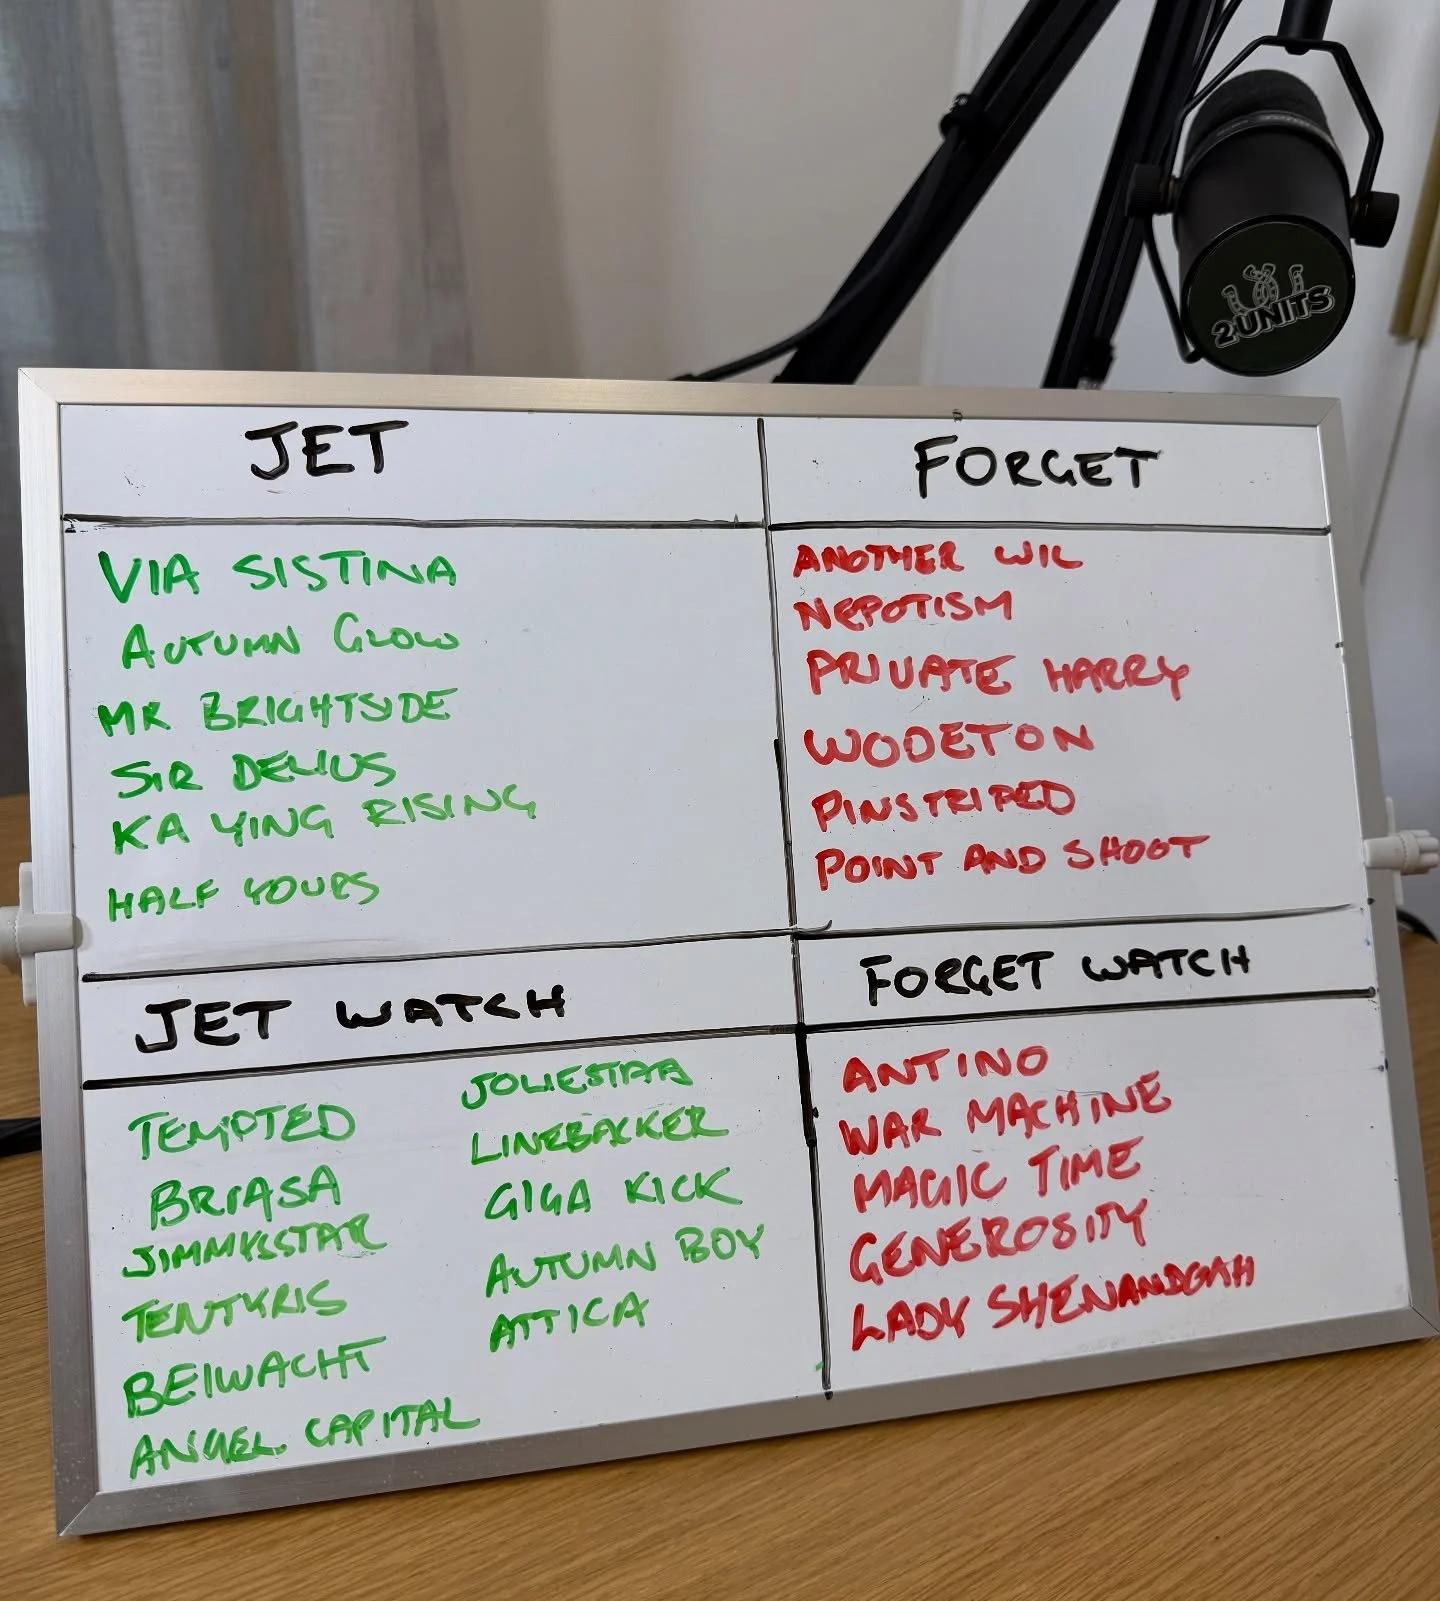 2 UNITS
JET
FORGET
VIA SISTINA
AUTUMN GLOW
MR BRIGHTSIDE
SIR DELIUS
KA YING RISING
HALF YOURS
ANOTHER WIL
NEPOTISM
PRIVATE HARRY
WODETON
PINSTRIPED
POINT AND SHOOT
JET WATCH
FORGET WATCH
TEMPTED
BRIASA
JIMMYSSTAR
TENTYRIS
BEIWACHT
ANGEL CAPITAL
JOLIESTAR
LINEBACKER
GIGA KICK
AUTUMN BOY
ATTICA
ANTINO
WAR MACHINE
MAGIC TIME
GENEROSITY
LADY SHENANDOAH